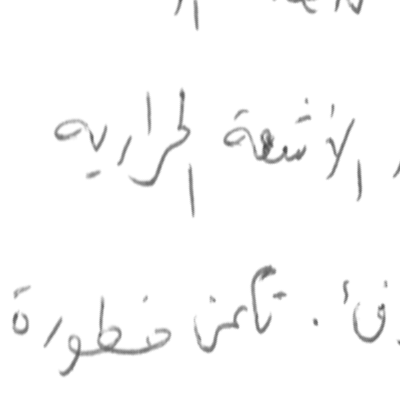 الأشعة الحرارية
. تكمن خطورة